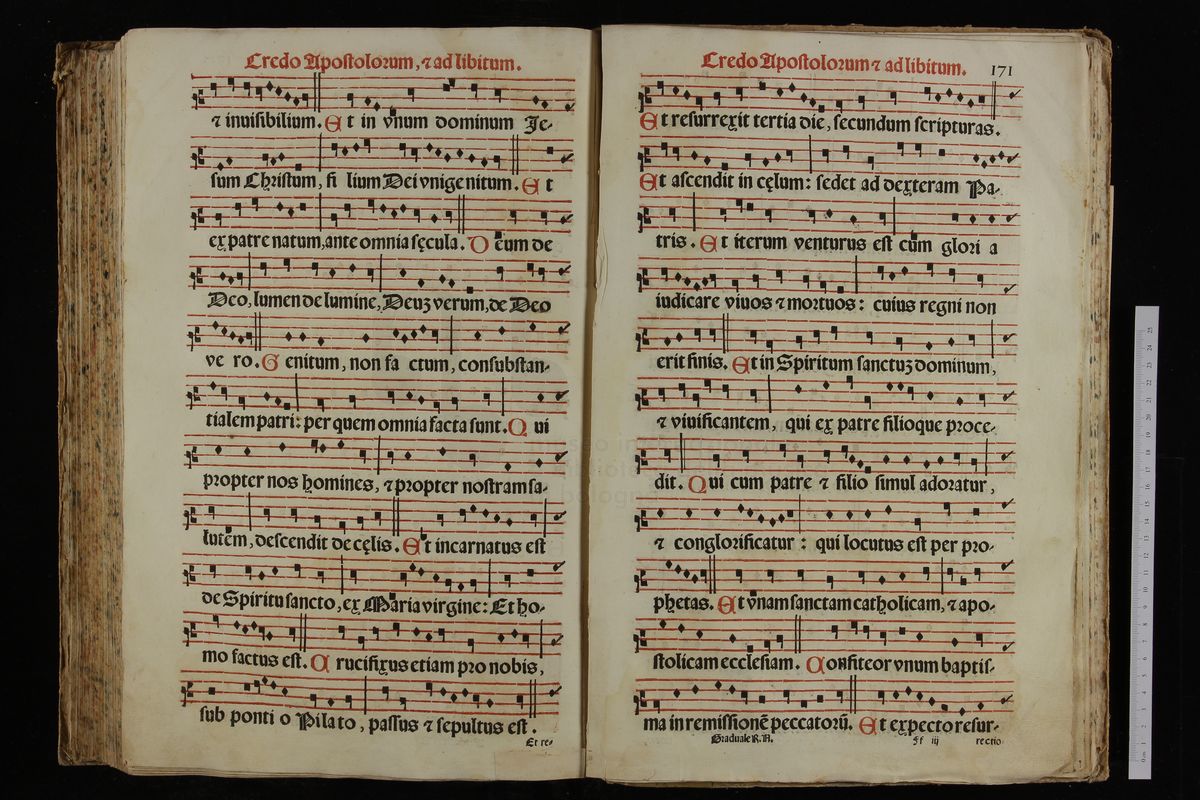 Credo Apostolorum, ⁊ ad libitum.
⁊ inuisibilium. Et in vnum dominum Je-
sum Christum, fi lium Dei vnige nitum. Et
ex patre natum, ante omnia sęcula. D eum de
Deo, lumen de lumine, Deuʒ verum, de Deo
ve ro. G enitum, non fa ctum, consubstan-
tialem patri: per quem omnia facta sunt. Q ui
propter nos homines, ⁊ propter nostram sa-
lutem, descendit de cęlis. Et incarnatus est
de Spiritu sancto, ex Maria virgine: Et ho-
mo factus est. C rucifixus etiam pro nobis,
sub ponti o Pilato, passus ⁊ sepultus est.
Et re-
Credo Apostolorum ⁊ ad libitum. 171
Et resurrexit tertia die, secundum scripturas.
Et ascendit in cęlum: sedet ad dexteram Pa-
tris. Et iterum venturus est cum glori a
iudicare viuos ⁊ mortuos: cuius regni non
erit finis. Et in Spiritum sanctuʒ dominum,
⁊ viuificantem, qui ex patre filioque proce-
dit. Qui cum patre ⁊ filio simul adoratur,
⁊ conglorificatur: qui locutus est per pro-
phetas. Et vnam sanctam catholicam, ⁊ apo-
stolicam ecclesiam. Confiteor vnum baptis-
ma in remissionē peccatorū. Et expecto resur-
Graduale R. A. Ff iij rectio